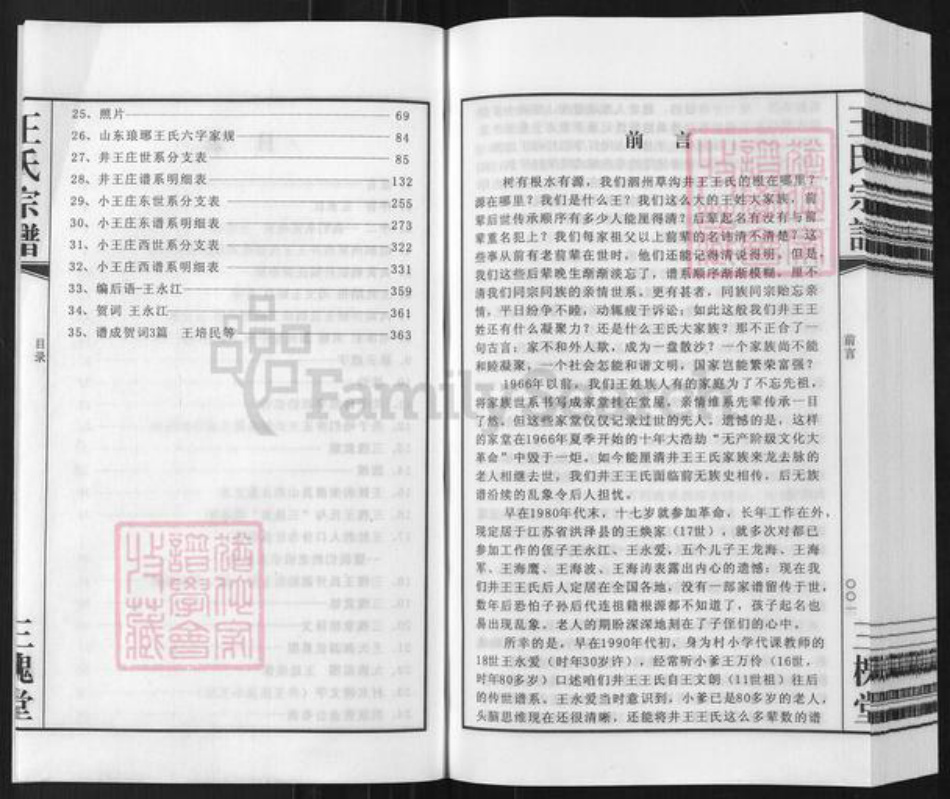 王氏宗谱
目录
三槐堂
25、照片 69
26、山东琅琊王氏六字家规 84
27、井王庄世系分支表 85
28、井王庄谱系明细表 132
29、小王庄东世系分支表 255
30、小王庄东谱系明细表 273
31、小王庄西世系分支表 322
32、小王庄西谱系明细表 331
33、编后语-王永江 359
34、贺词 王永江 361
35、谱成贺词3篇 王培民等 363
FamilySearch
前 言
树有根水有源，我们泗州草沟井王王氏的根在哪里？
源在哪里？我们是什么王？我们这么大的王姓大家族，前
辈后世传承顺序有多少人能厘得清？后辈起名有没有与前
辈重名犯上？我们每家祖父以上前辈的名讳清不清楚？这
些事从前有老前辈在世时，他们还能记得清说得明，但是，
我们这些后辈晚生渐渐淡忘了，谱系顺序渐渐模糊，厘不
清我们同宗同族的亲情世系。更有甚者，同族同宗饴忘亲
情，平日纷争不睦，动辄疲于诉讼；如此这般我们井王王
姓还有什么凝聚力？还是什么王氏大家族？那不正合了一
句古言：家不和外人欺，成为一盘散沙？一个家族尚不能
和睦凝聚，一个社会怎能和谐文明，国家岂能繁荣富强？
1966年以前，我们王姓族人有的家庭为了不忘先祖，
将家族世系书写成家堂挂在堂屋，亲情维系先辈传承一目
了然，但这些家堂仅仅记录过世的先人。遗憾的是，这样
的家堂在1966年夏季开始的十年大浩劫“无产阶级文化大
革命”中毁于一炬。如今能厘清井王王氏家族来龙去脉的
老人相继去世，我们井王王氏面临前无族史相传，后无族
谱沿续的乱象令后人担忧。
早在1980年代末，十七岁就参加革命，长年工作在外，
现定居于江苏省洪泽县的王焕家（17世），就多次对都已
参加工作的侄子王永江、王永爱，五个儿子王龙海、王海
军、王海鹰、王海波、王海涛表露出内心的遗憾：现在我
们井王王氏后人定居在全国各地，没有一部家谱留传于世，
数年后恐怕子孙后代连祖籍根源都不知道了，孩子起名也
易出现乱象。老人的期盼深深地刻在了子侄们的心中。
所幸的是，早在1990年代初，身为村小学代课教师的
18世王永爱（时年30岁许），经常听小爹王万伶（16世，
时年80多岁）口述咱们井王王氏自王文朗（11世祖）往后
的传世谱系。王永爱当时意识到，小爹已是80多岁的老人，
头脑思维现在还很清晰，还能将井王王氏这么多辈数的谱
王氏宗谱
前言
〇〇一
三槐堂